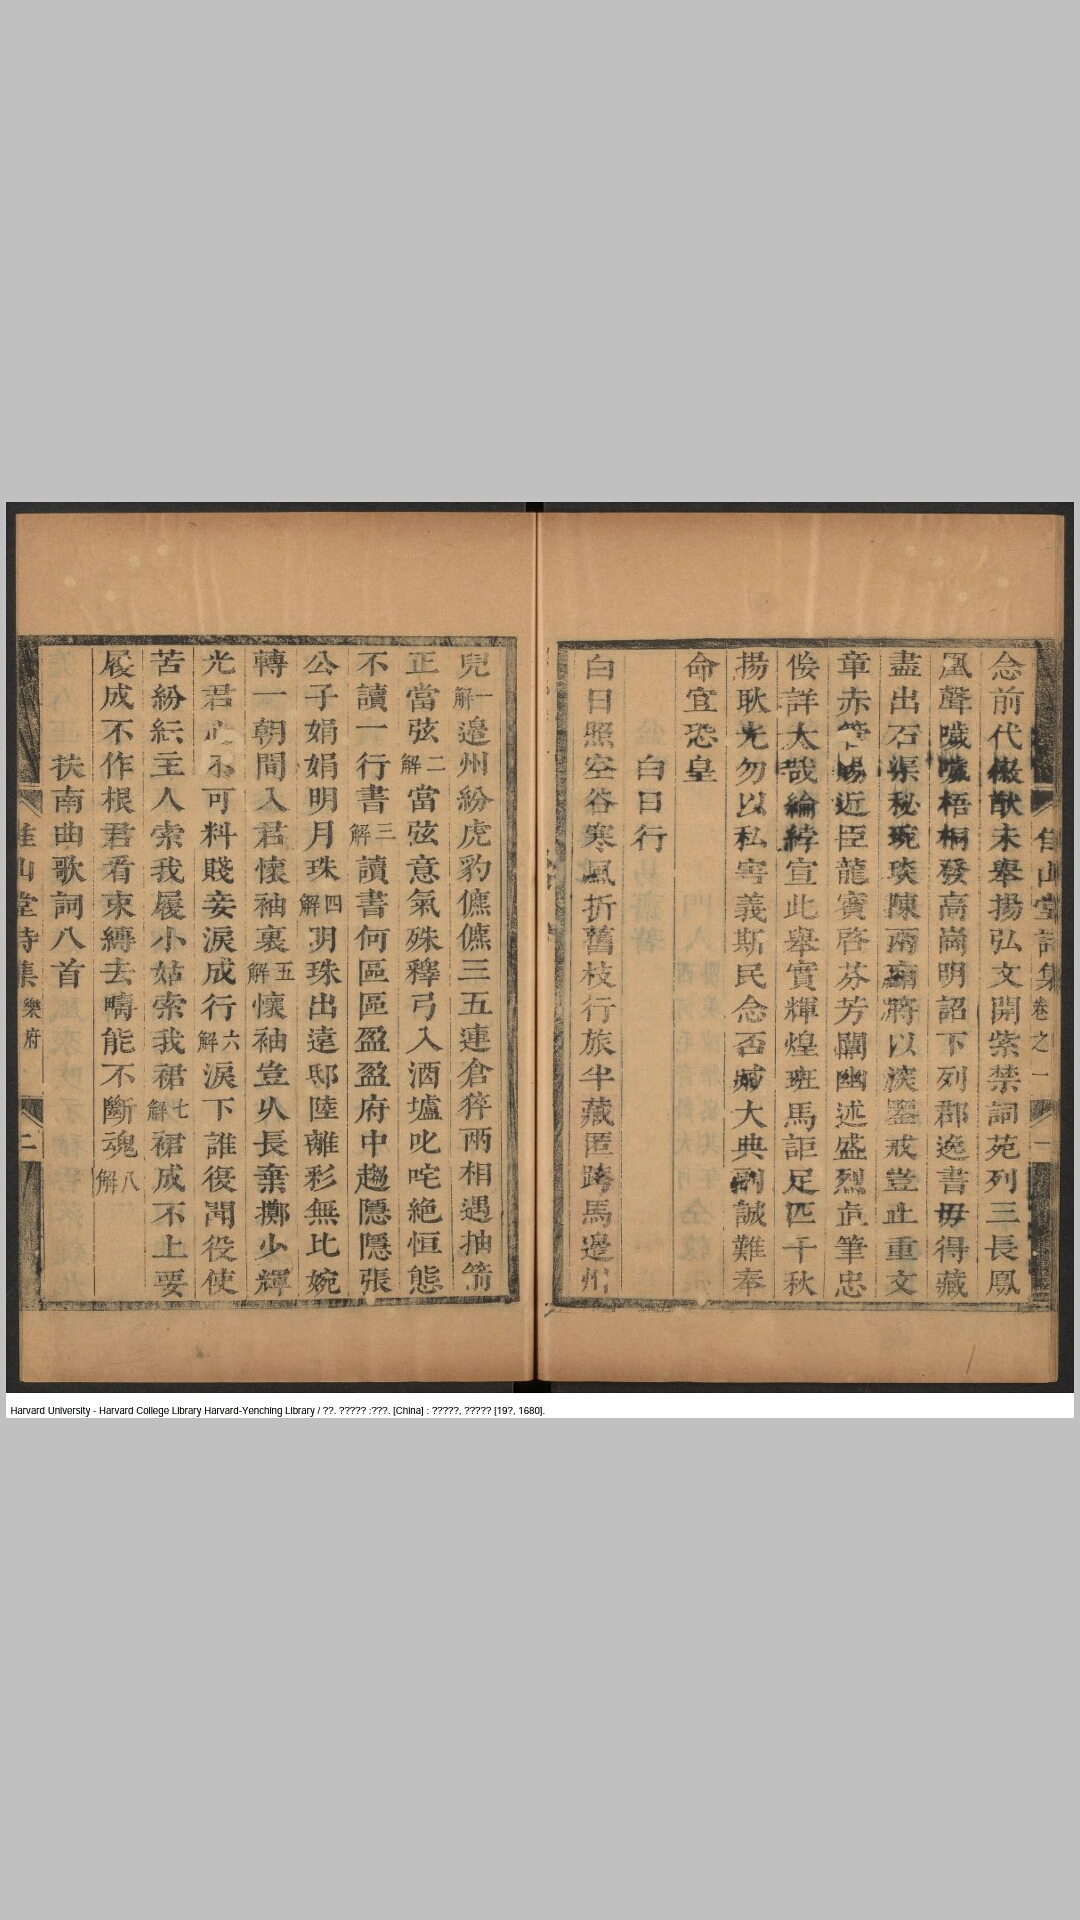 念前代徽猷未舉揚弘文開紫禁詞苑列三長鳳
凰聲噦噦梧桐發高崗明詔下列郡逸書毋得藏
盡出石渠秘琬琰陳兩廂將以淡墨戒豈止重文
章赤管錫近臣龍賓啓芬芳闡幽述盛烈貞筆忠
佞詳大哉綸綍宣此舉實輝煌班馬詎足匹千秋
揚耿光勿以私害義斯民念否臧大典副誠難奉
命宜恐皇
白日行
白日照空谷寒風折舊枝行旅半藏匿跨馬邊州
兒一解邊州紛虎豹儦儦三五連倉猝兩相遇抽箭
正當弦二解當弦意氣殊釋弓入酒壚叱咤絶恒態
不讀一行書三解讀書何區區盈盈府中趨隱隱張
公子娟娟明月珠四解明珠出遠邸陸離彩無比婉
轉一朝間入君懷袖裏五解懷袖豈久長棄擲少輝
光君心不可料賤妾淚成行六解淚下誰復聞役使
苦紛紜主人索我履小姑索我裙七解裙成不上要
履成不作根君看束縛去疇能不斷魂八解
扶南曲歌詞八首
佳山堂詩集 卷之一 一
佳山堂詩集 樂府 二
Harvard University - Harvard College Library Harvard-Yenching Library / ??. ????? :???. [China] : ?????, ????? [19?, 1680].